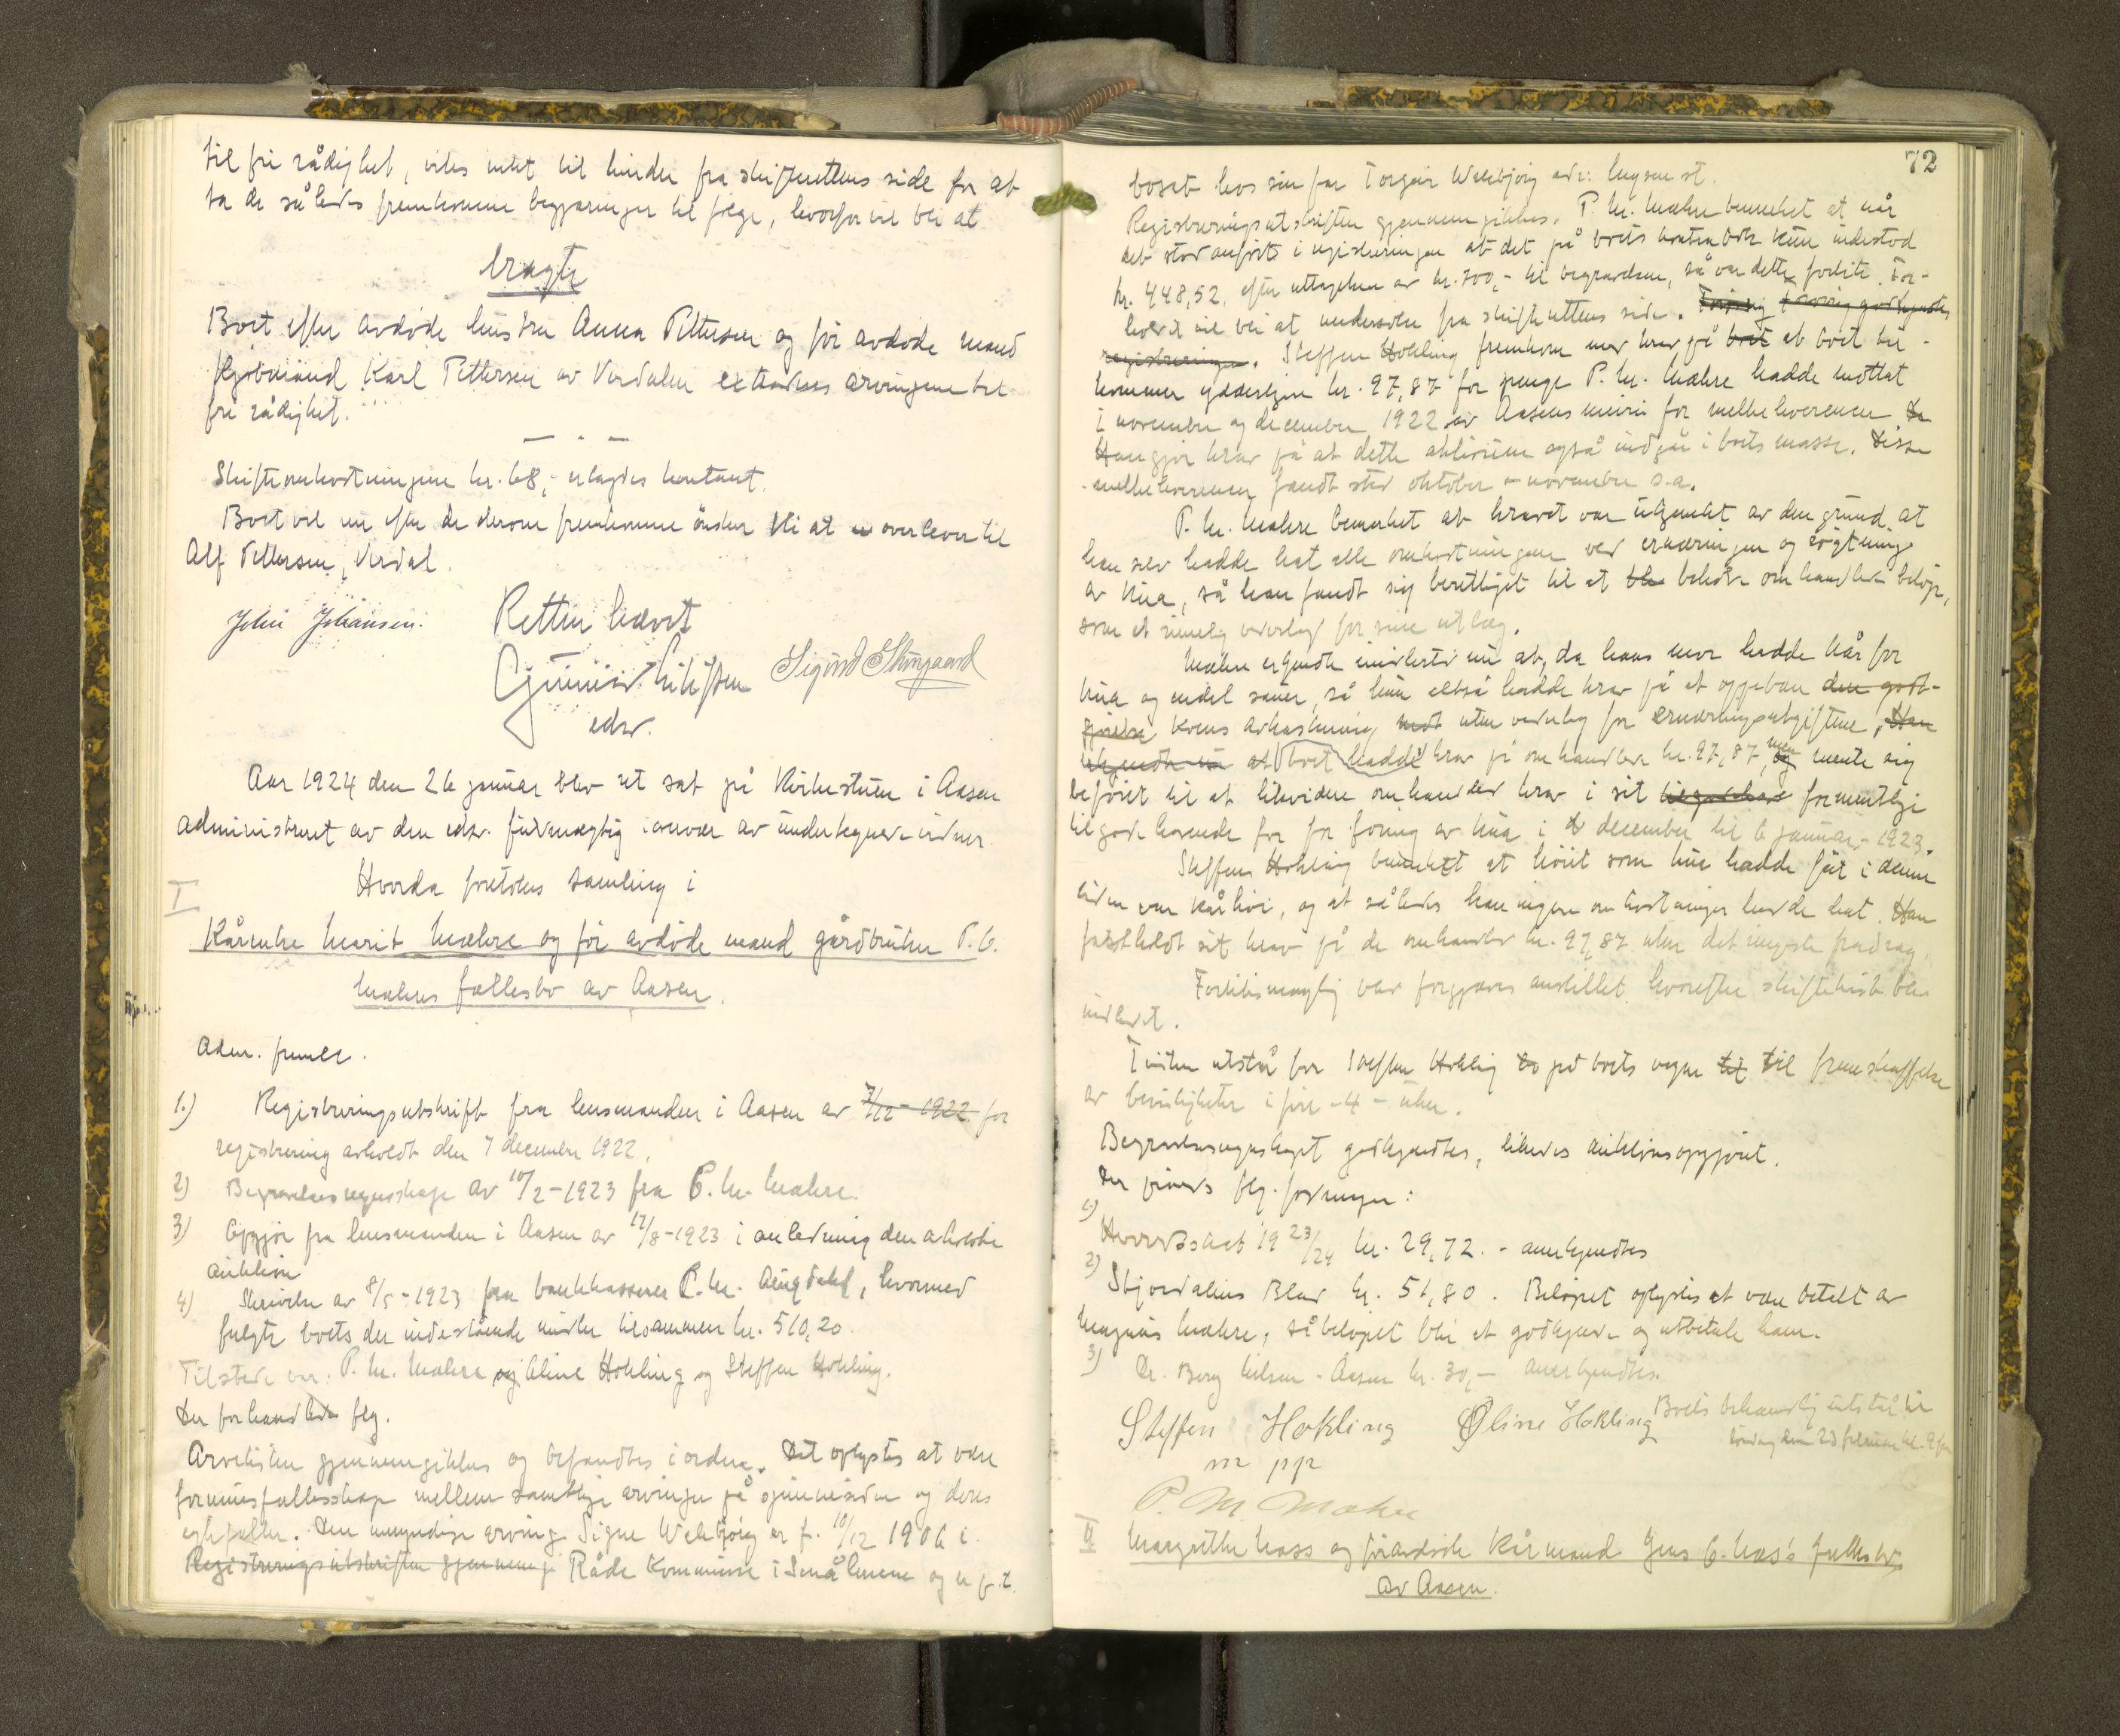 til fri rådighet, vites intet til hinder fra skifterettens side for at
ta de således fremkomne begjæringer til følge, hvorfor vil bli at
eragte
Boet efter avdøde hustru Anna Pettersen og før avdøde mand
kjøbmand Karl Pettersen av Verdalen extraderes arvingene til
fri rådighet.
Skifteomkostningene kr. 68,- erlagdes kontant.
Boet vil nu efter de derom fremkomne ønsker bli at overlevere til
Alf Pettersen, Verdal.
John Johansen. Retten hævet
Gunnar Sigurd Skingaard
edsv.
Aar 1924 den 26 januar blev ret sat på Kirkestuen i Aasen
administreret av den edsv. fuldmægtig i overvær av undertegnede vidner.
Hvorda foretokes samling i
I
Kårenke Marit Mæhre og før avdøde mand gårdbruker P. O.
Mæhres fællesbo av Aasen.
Adm. fremla.
1.) Registreringsutskrift fra lensmanden i Aasen av 7/12-1922 for
registrering avholdt den 7 december 1922.
2) Begravelsesregnskap av 10/2-1923 fra P. M. Mæhre.
3) Opgjør fra lensmanden i Aasen av 17/8-1923 i anledning den avholdte
auktion
4) Skrivelse av 8/5-1923 fra bankkasserer P. M. Aungdahl, hvormed
fulgte boets der indestående midler tilsammen kr. 510,20
Tilstede var: P. M. Mæhre og Oline Hokling og Steffen Hokling.
Der forhandledes flg.
Arvelisten gjennemgikkes og befandtes i orden. Det oplystes at være
formuesfællesskap mellem samtlige arvinger på kvindesiden og deres
egtefæller. Den umyndige arving Signe Welebjørg er f. 10/12 1906 i
Registreringsutskriften gjennemg Råde kommune i Smålenene og er f. t.
72
bosat hos sin far Torgeir Welebjørg adr:
Registreringsutskriften gjennemgikkes. P. M. Mæhre bemerket at når
det stod anført i registreringen at det på boets kontrabok kun indestod
kr. 448,52, efter uttagelsen av kr. 300,- til begravelsen, så var dette feil.
vil bli at undersøke fra skifterettens side. Forøvrig godkjendtes
registreringen. Steffen Hokling fremkom med krav på at boet til-
kommer ydderligere kr. 97,87 for penge P. M. Mæhre hadde mottat
i november og december 1922 av Aasens meieri for melkeleverencer
Han gjør krav på at dette aktivum også indgår i boets masse. Disse
melkeleverencer fandt sted oktober - november s.a.
P. M. Mæhre bemerket at kravet var ugrundet av den grund at
han selv hadde hat alle omkostningene ved ernæringen og røgtning
av kua, så han fandt sig berettiget til at beholde omhandlede beløp,
som et rimelig vederlag for sine utlæg.
Mæhre erkjendte imidlertid nu at, da hans mor hadde kår for
kua og endel sauer, så hun altså hadde krav på at oppebære den godt-
gjørelse kuens avkastning uten vederlag for ernæringsutgiftene, Han
erkjendte nu at boet hadde krav på omhandlede kr. 97,87, men mente sig
beføiet til at likvidere omhandlede krav i sit formentlige
tilgodehavende for foring av kua i december til 6 januar 1923.
Steffen Hokling bemerket at høiet som kua hadde fåt i denne
tiden var kårhøi, og at således han ingen omkostninger hadde hat. Han
fastholdt sit krav på de omhandlede kr. 97,87 uten det ringeste fradrag.
Forliksmægling var forgjæves anstillet hvorefter skiftetvist blev
indledet.
Tvisten utstår for Steffen Hokling på boets vegne til fremskaffelse
av bevisligheter i fire -4- uker.
Begravelsesregnskapet godkjendtes, likeledes auktionsopgjøret.
Der prøvedes flg. fordringer:
1) Herredsskat 1923/24 kr. 29,72. - anerkjendtes
2) Stjørdalens Blad kr. 51,80. Beløpet oplystes at være betalt av
Magnus Mæhre, så beløpet blir at godkjende og utbetale ham.
3) Dr. Berg Nilsen - Aasen kr. 30,- anerkjendtes.
Steffen Hokling Øline Hokling Boets behandling utstår til
lørdag den 23 februar kl. 9 fm
m p p
P. M. Mæhre
II Margrethe Hass og før avdøde kårmand Jens O. Hass's fællesbo
av Aasen.